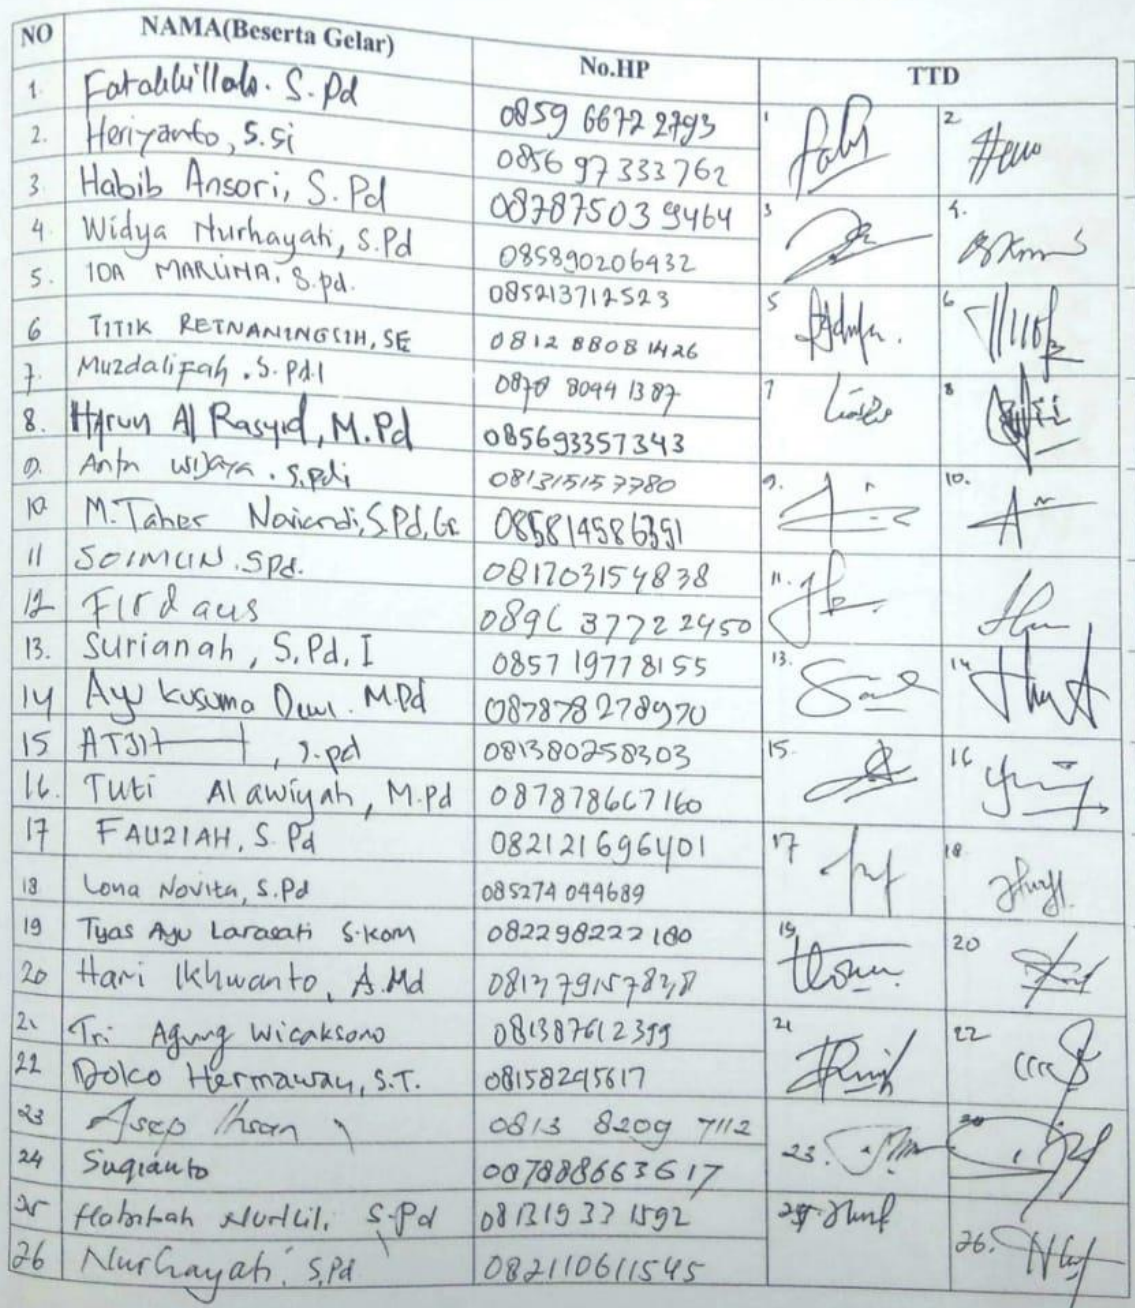 NO NAMA(Beserta Gelar) No.HP TTD
1. Fatahillah. S.Pd 0859 6672 2793 1
2. Heriyanto, S.Si 0856 97333762 2
3. Habib Ansori, S.Pd 087875039464 3
4. Widya Nurhayati, S.Pd 085890206432 4.
5. IDA MARLINA. S.pd. 085213712523 5
6 TITIK RETNANINGSIH, SE 0812 8808 1426 6
7. Muzdalifah. S.Pd.I 0878 8094 1387 7
8. Harun Al Rasyid, M.Pd 085693357343 8
9. Antn wijaya. S.pdi 081315157780 9.
10 M. Taher Noviandi, S.Pd, Gr 085814586351 10.
11 SOIMUN. Spd. 081703154838 11.
12 Firdaus 0896 3772 2450
13. Surianah, S.Pd, I 0857 19778155 13.
14 Ayu Kusuma Dewi. M.Pd 087878278970 14
15 , S.pd 081380258303 15.
16. Tuti Alawiyah, M.Pd 087878667160 16
17 FAUZIAH, S.Pd 082121696401 17
18 Lona Novita, S.Pd 085274 044689 18
19 Tyas Ayu Larasati S.Kom 082298222180 19
20 Hari Ikhwanto, A.Md 20
21 Tri Agung Wicaksono 081387612399 21
22 Hermawan, S.T. 08158295617 22
23 Asep Ihsan 0813 8209 7112 23.
24 Sugianto 087888663617
25 S.Pd 0813193 31592 25
26 Nurhayati. S.Pd 082110611545 26.